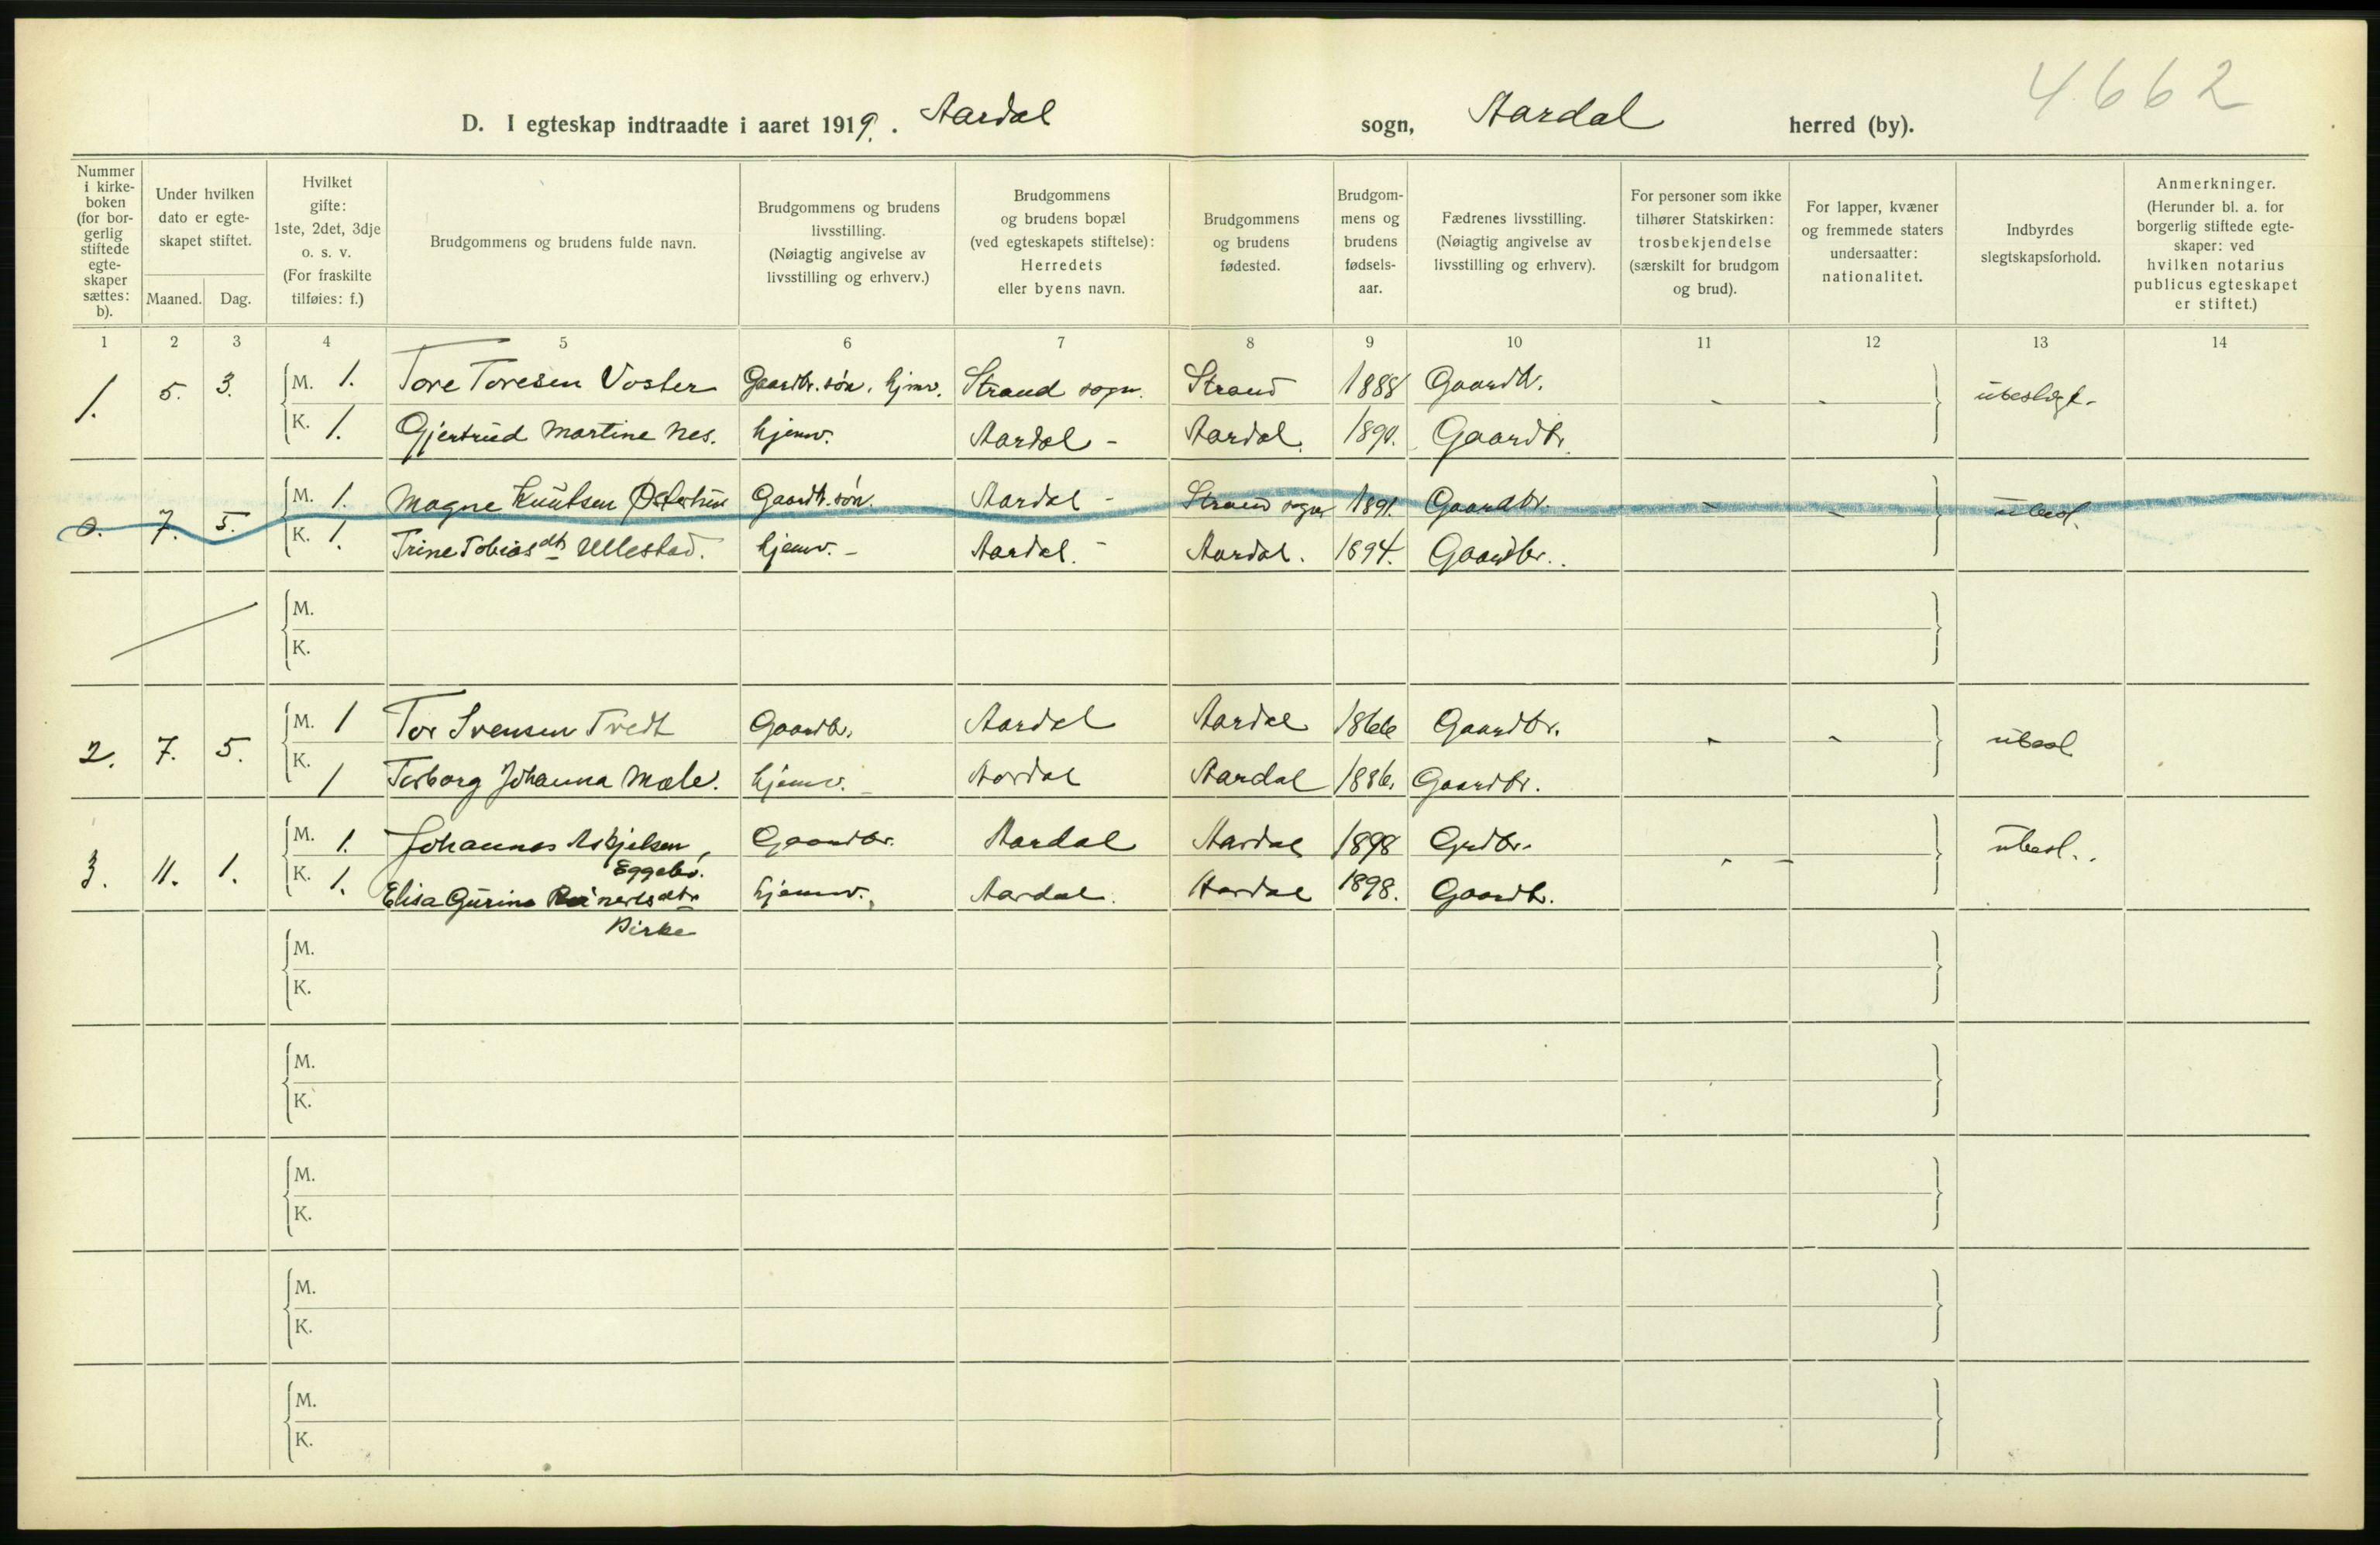 4.662
D. I egteskap indtraadte i aaret 1919. Aardal sogn, Aardal herred (by).
Nummer i kirke-boken (for bor-gerlig stiftede egte-skaper sættes: b).
Under hvilken dato er egte-skapet stiftet.
Maaned. Dag.
Hvilket gifte: 1ste, 2det, 3dje o. s. v. (For fraskilte tilføies: f.)
Brudgommens og brudens fulde navn.
Brudgommens og brudens livsstilling. (Nøiagtig angivelse av livsstilling og erhverv.)
Brudgommens og brudens bopæl (ved egteskapets stiftelse): Herredets eller byens navn.
Brudgommens og brudens fødested.
Brudgom-mens og brudens fødsels-aar.
Fædrenes livsstilling. (Nøiagtig angivelse av livsstilling og erhverv).
For personer som ikke tilhører Statskirken: trosbekjendelse (særskilt for brudgom og brud).
For lapper, kvæner og fremmede staters undersaatter: nationalitet.
Indbyrdes slegtskapsforhold.
Anmerkninger. (Herunder bl. a. for borgerlig stiftede egte-skaper: ved hvilken notarius publicus egteskapet er stiftet.)
1 2 3 4 5 6 7 8 9 10 11 12 13 14
1. 5. 3. M. 1. Tore Toresen Voster Gaardbr. søn, hjmv. Strand sogn. Strand 1888 Gaardb. - - ubeslegt.
K. 1. Gjertrud Martine Nes. hjemv. Aardal - Aardal. 1890. Gaardbr.
7. 5. M. 1. Magne Knutsen Østerhus Gaardb. søn. Aardal - Strand sogn 1891. Gaardbr. - - ubesl.
K. 1. Trine Tobiasdt Ullestad. hjemv. - Aardal. - Aardal. 1894. Gaardbr.
M.
K.
2. 7. 5. M. 1 Tor Svensen Tvedt Gaardb. Aardal Aardal 1866 Gaardbr. - - ubesl.
K. 1 Torborg Johanna Mæle. hjemv. - Aardal Aardal 1886. Gaardbr.
3. 11. 1. M. 1. Johannes Askjelsen, Gaardbr. Aardal Aardal 1898 Grdbr. - - ubesl.
Eggebø.
K. 1. Elisa Gurine Reinertsdtr hjemv. Aardal. Aardal 1898. Gaardb.
Birke
M.
K.
M.
K.
M.
K.
M.
K.
M.
K.